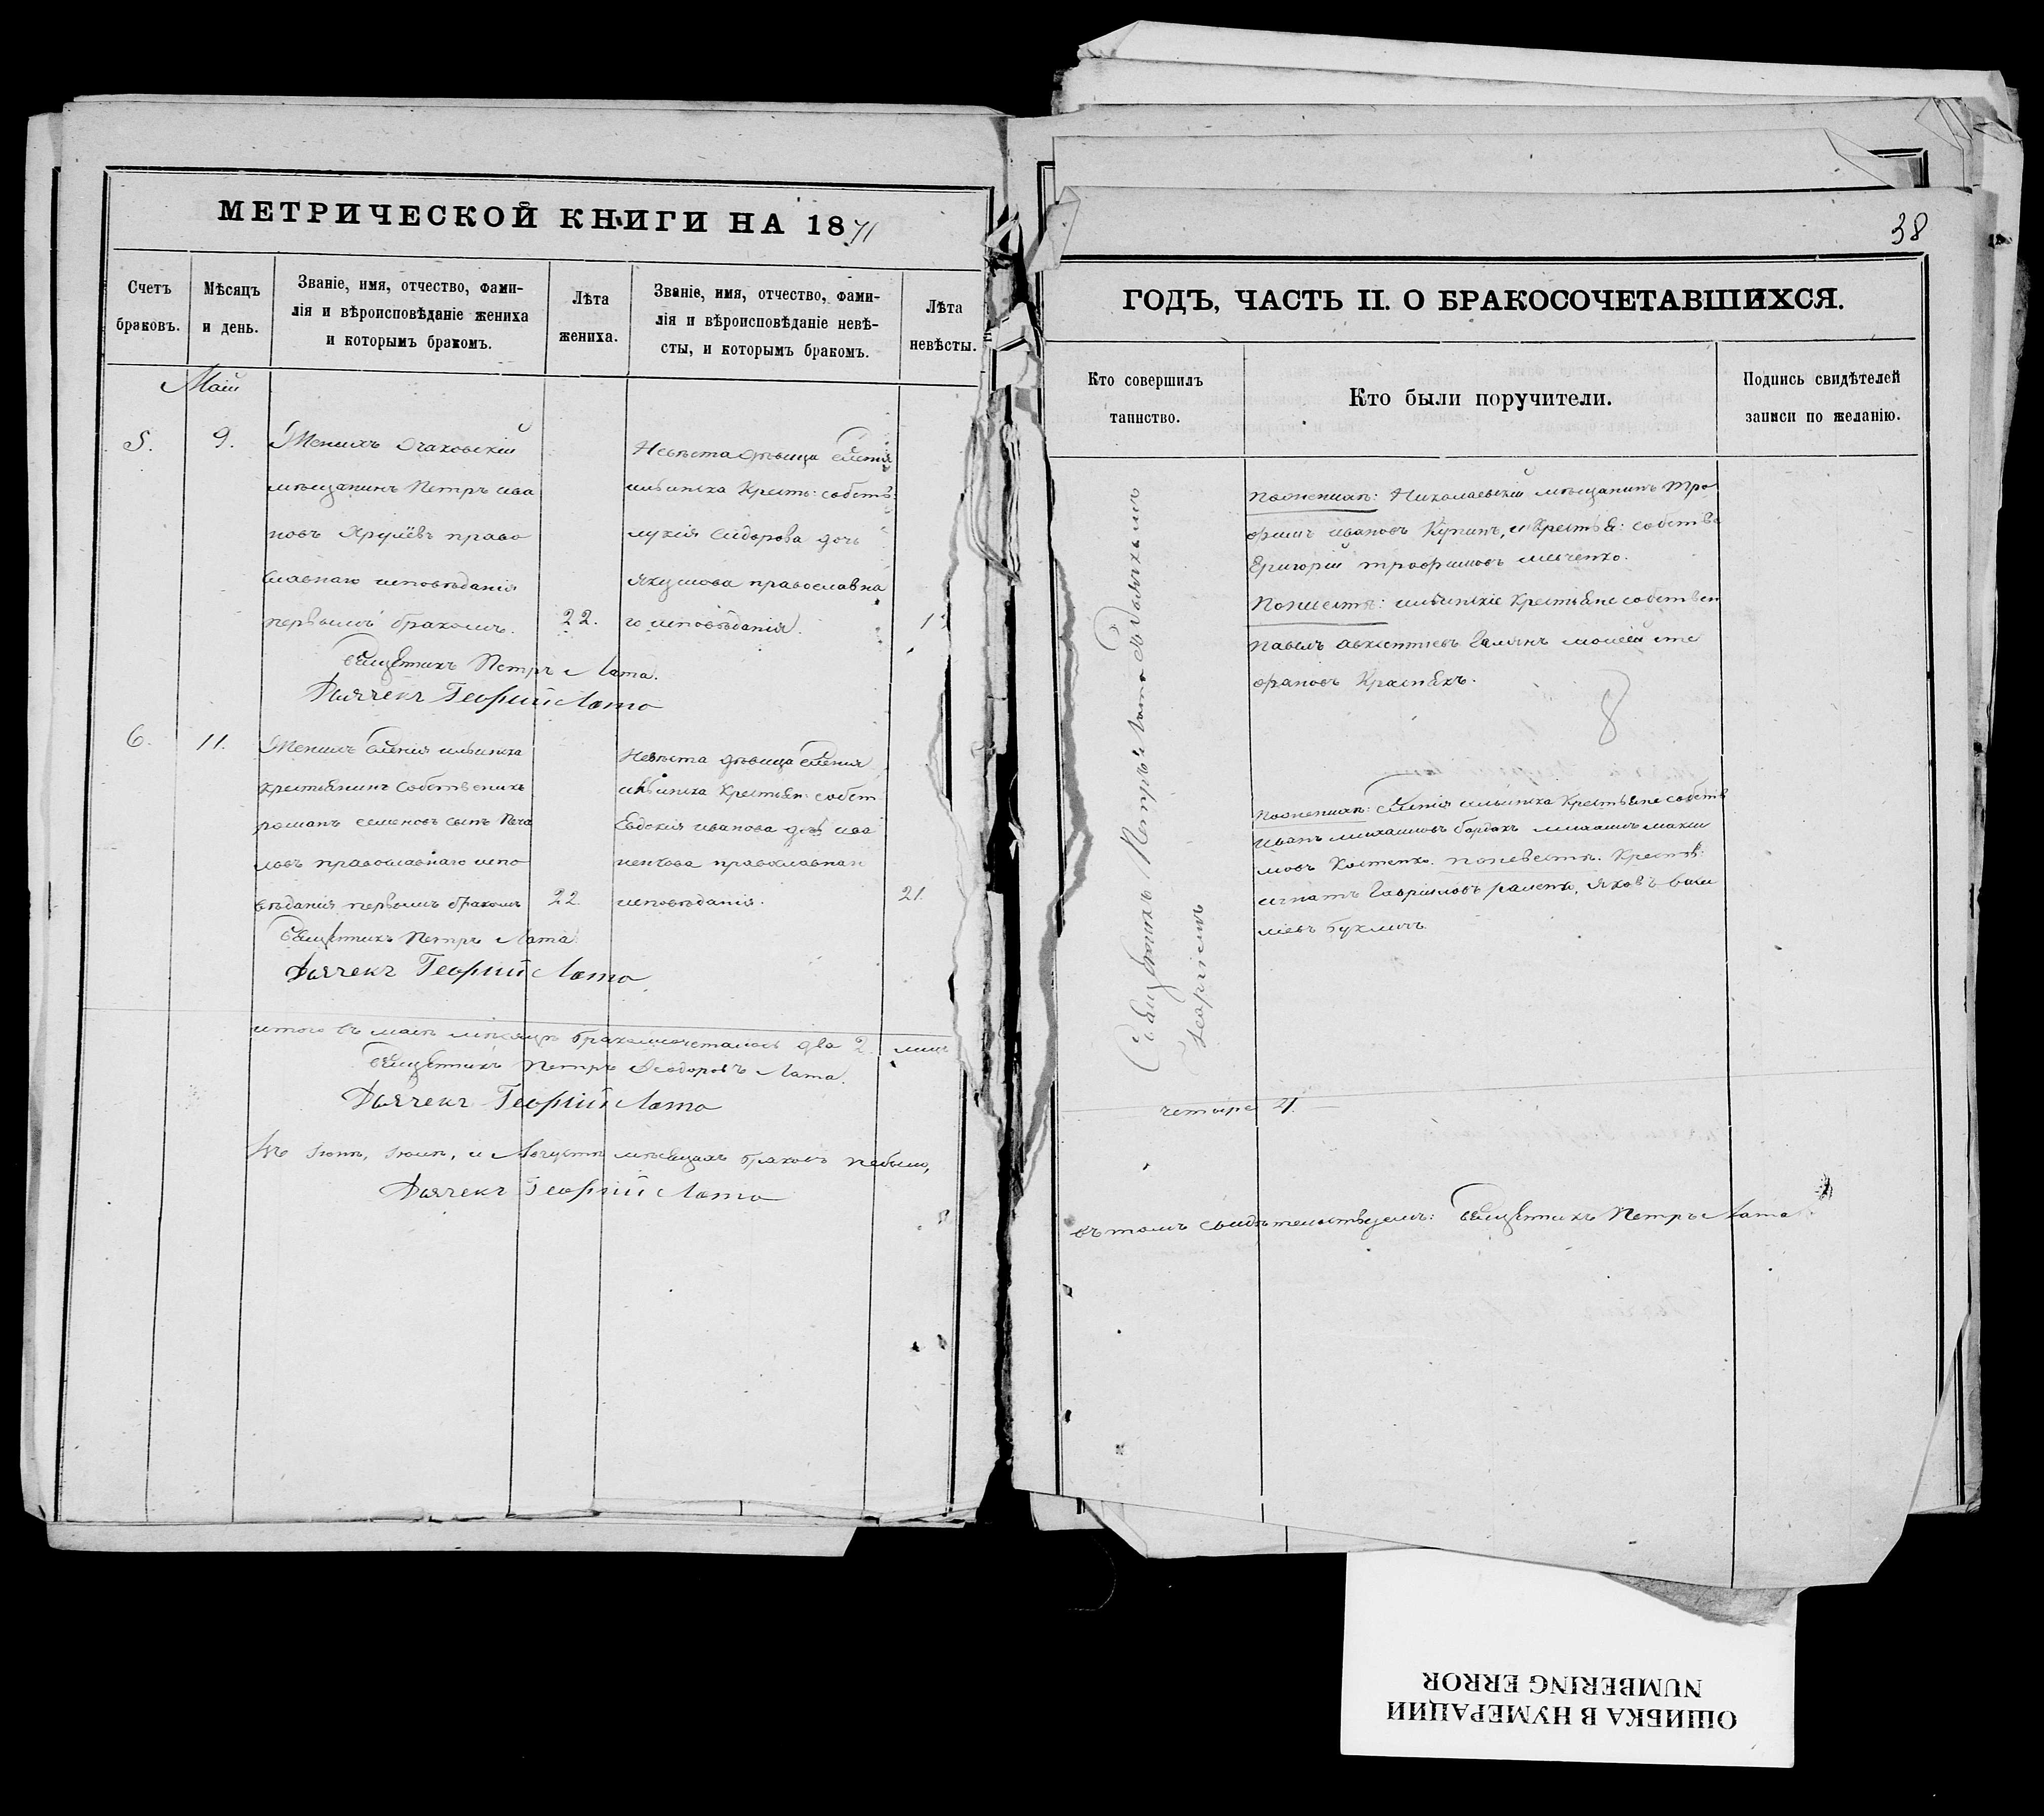 МЕТРИЧЕСКОЙ КНИГИ НА 1871
Счетъ браковъ.
Мѣсяцъ и день.
Званіе, имя, отчество, фами-
лія и вѣроисповѣданіе жениха
и которымъ бракомъ.
Лѣта жениха.
Званіе, имя, отчество, фами-
лія и вѣроисповѣданіе невѣ-
сты, и которымъ бракомъ.
Лѣта невѣсты.
Май
5.
9.
Женихъ Очаковскій
мѣщанинъ Петръ ива
новъ Хрулёвъ право
славнаго исповѣданія
первымъ бракомъ.
22.
Невѣста дѣвица
ильинска Крест: собств:
лукія Сидорова дочь
православна
го исповѣданія.
Священникъ Петръ Лата.
Дьячекъ Георгій Лато
6.
11.
Женихъ селенія ильинска
крестьянинъ Собственикъ
романъ семеновъ сынъ
ловъ православнаго испо
вѣданія первымъ бракомъ
22.
Невѣста дѣвица селенія
ильинска Крестьян: собст
Евдокія иванова дочь ива
ненкова православнаго
исповѣданія.
21.
Священникъ Петръ Лата
Дьячекъ Георгій Лато.
итого въ маѣ мѣсяцѣ бракосочеталось два 2. лицъ
Священникъ Петръ Ѳеодоровъ Лата.
Дьячекъ Георгій Лато
Въ Іюнѣ, Іюлѣ, и Августѣ мѣсяцахъ браковъ небыло,
Дьячекъ Георгій Лато
38
ГОДЪ, ЧАСТЬ II. О БРАКОСОЧЕТАВШИХСЯ.
Кто совершилъ таинство.
Кто были поручители.
Подпись свидѣтелей
записи по желанію.
Священникъ Петръ Лата съ Дьячкомъ
Георгіемъ
Поженихѣ: Николаевскій мѣщанинъ Тро
фимъ ивановъ Купинъ, и Крестья: собств
Григорій трофимовъ
ильинскіе Крестьяне собствен
павелъ авксентіевъ моисей сте
фановъ
8
Поженихѣ: селенія ильинска Крестьяне собств
иванъ михаиловъ бардакъ михаилъ макси
мовъ Костенко. поневестѣ: Крестьян:
игнатъ Гавриловъ яковъ васи
ліевъ
четыре 4.
въ томъ свидѣтельствуемъ: Священникъ Петръ Лата.
ОШИБКА В НУМЕРАЦИИ
NUMBERING ERROR